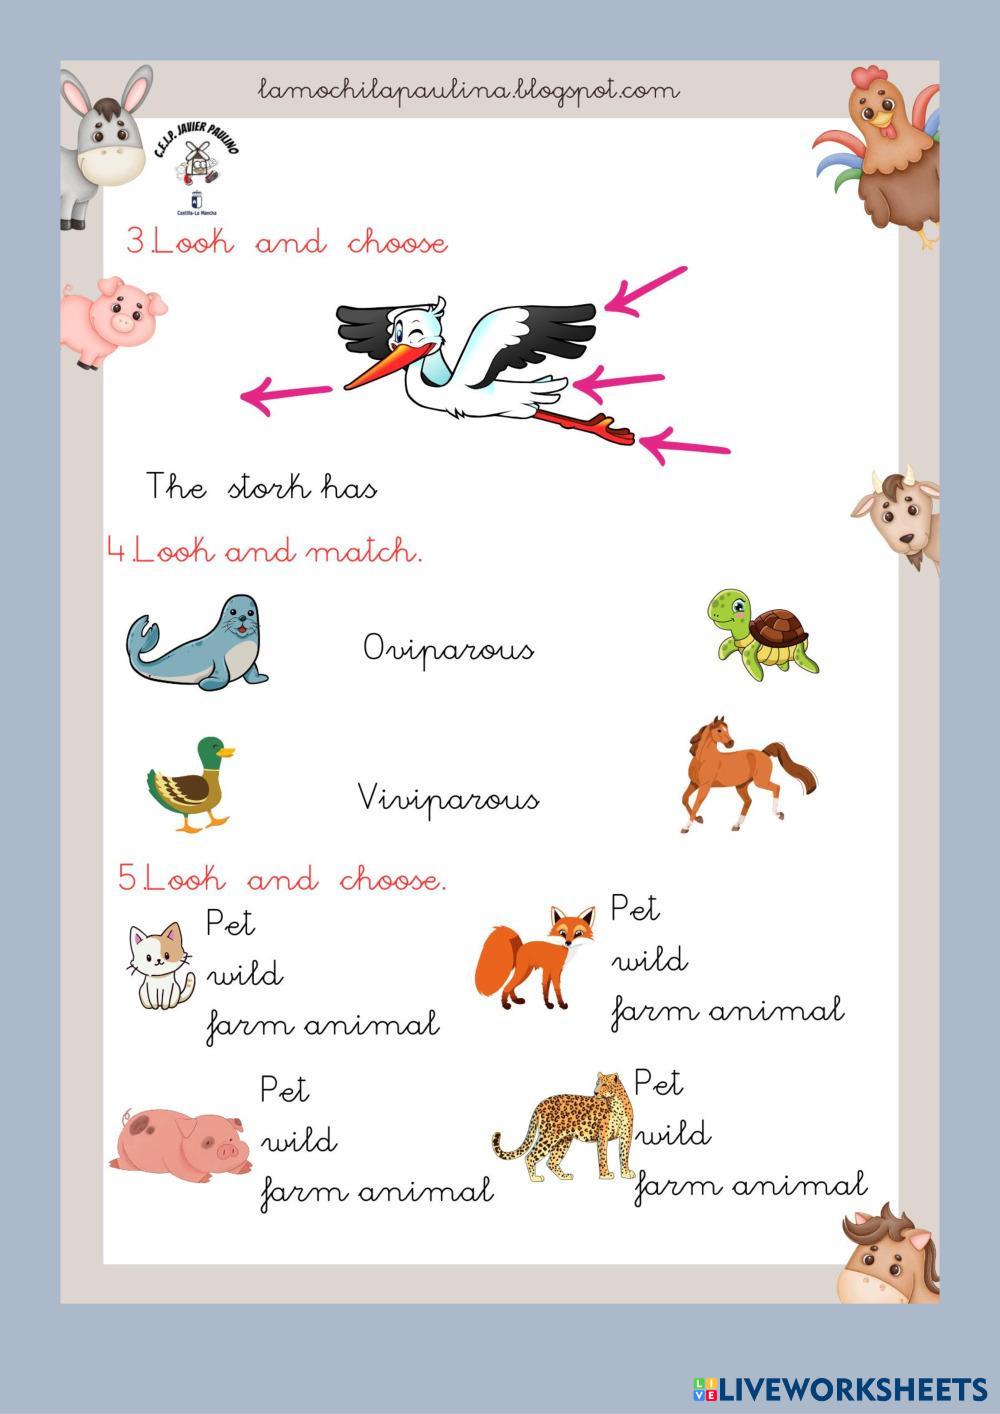 lamochilapaulina.blogspot.com
C.E.I.P. JAVIER PAULINO
Castilla-La Mancha
3.Look and choose
The stork has
4.Look and match.
Oviparous
Viviparous
5.Look and choose.
Pet
wild
farm animal
Pet
wild
farm animal
Pet
wild
farm animal
Pet
wild
farm animal
LIVE LIVEWORKSHEETS